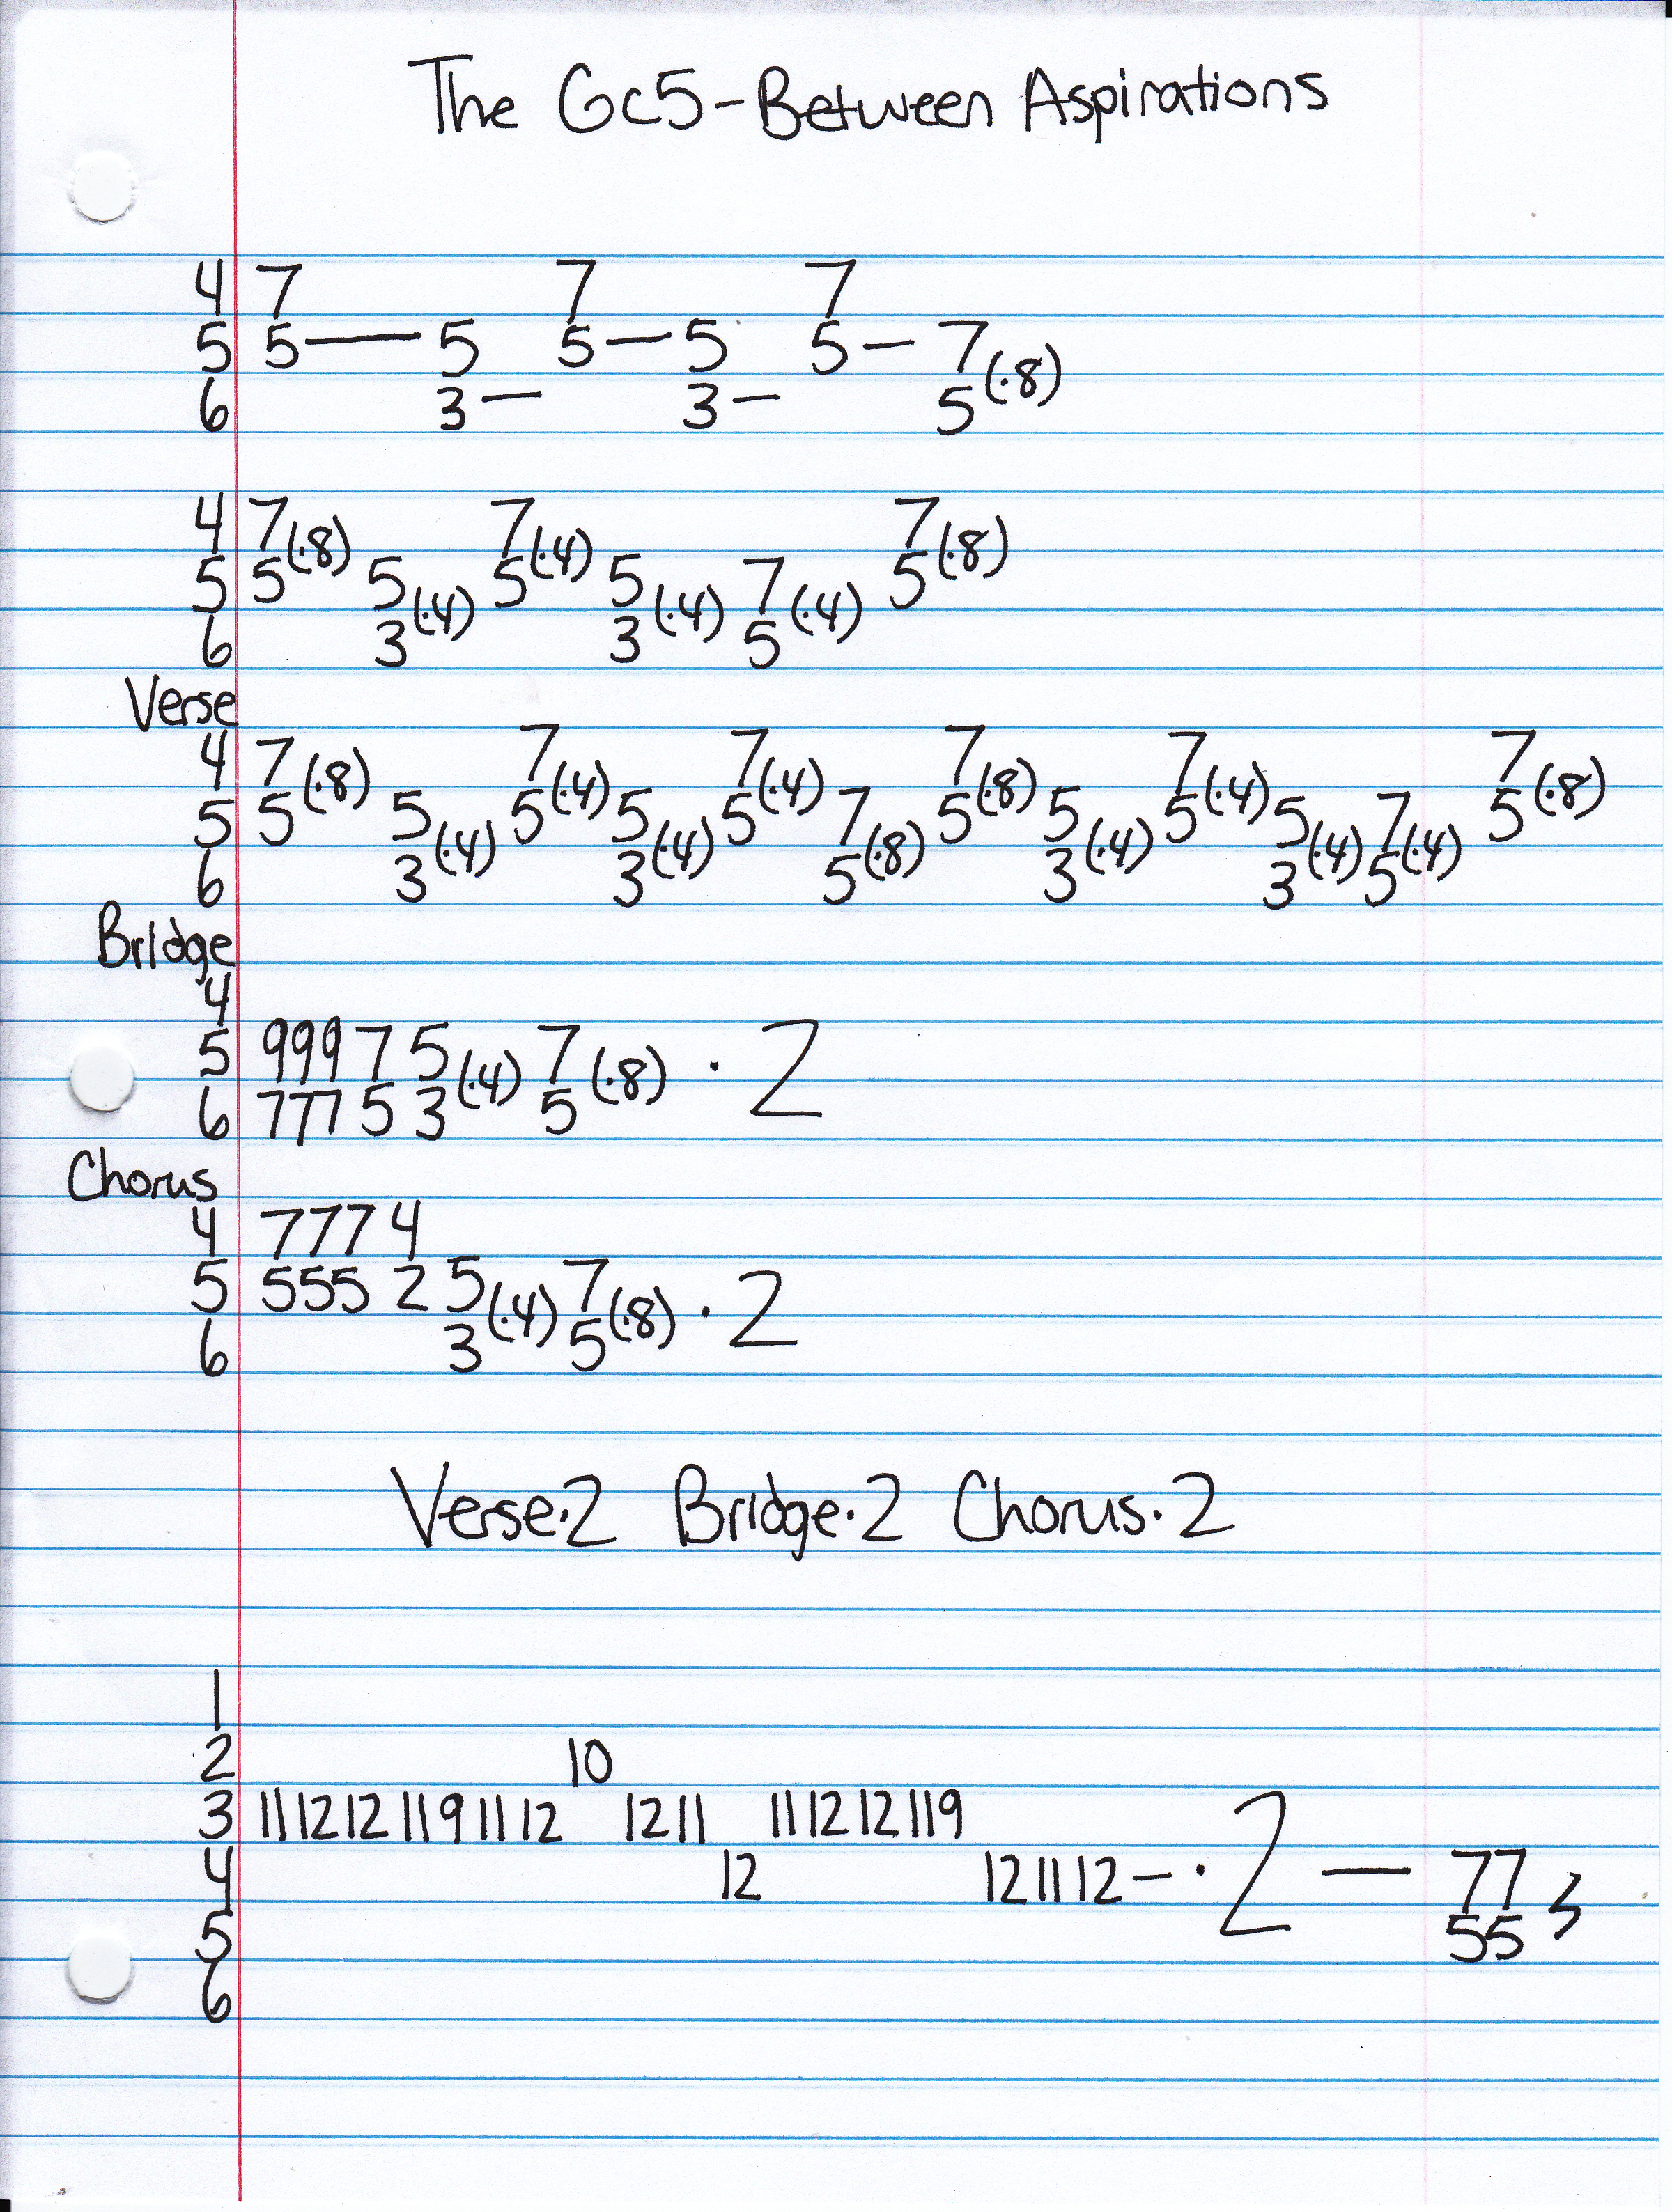 The Gc5-Between Aspirations
4 7 7 7
5 5— 5 5—5 5— 7
6 3— 3— 5(·8)
4 7(·8) 7(·4) 7(·8)
5 5 5 5 5 7 5
6 3(·4) 3(·4) 5(·4)
Verse
4 7(·8) 7(·4) 7(·4) 7(·8) 7(·4) 7(·8)
5 5 5 5 5 5 7 5 5 5 5 7 5
6 3(·4) 3(·4) 5(·8) 3(·4) 3(·4) 5(·4)
Bridge
4
5 999 7 5(·4) 7(·8) ·2
6 777 5 3 5
Chorus
4 7774
5 555 2 5(·4) 7(·8) ·2
6 3 5
Verse·2 Bridge·2 Chorus·2
1
2 10
3 11 12 12 11 9 11 12 12 11 11 12 12 11 9
4 12 12 11 12— ·2 — 77
5 55
6